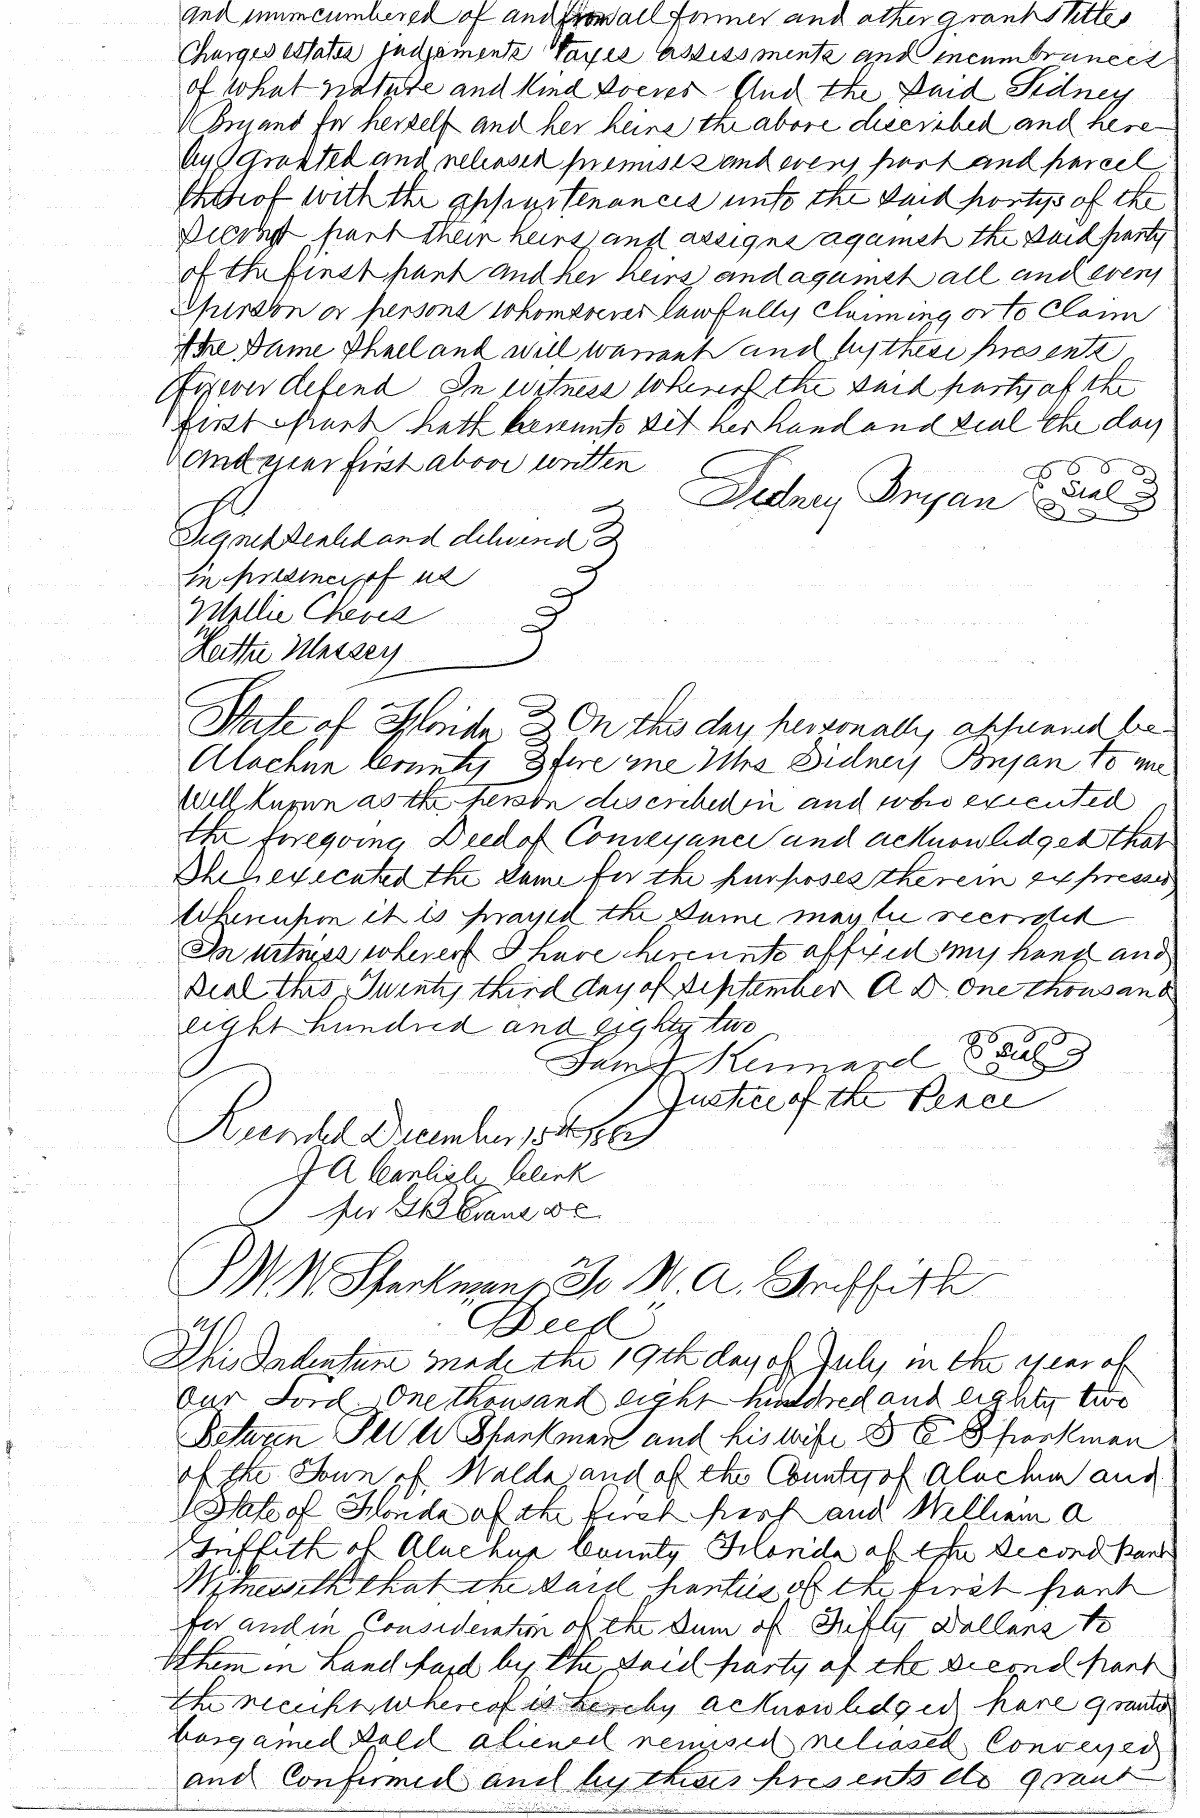 and unincumbered of and from all former and other grants titles
Charges estates judgements taxes assessments and incumbrances
of what nature and kind soever And the said Sidney
Bryand for herself and her heirs the above described and here-
by granted and released premises and every part and parcel
thereof with the appurtenances unto the said partys of the
second part their heirs and assigns against the said party
of the first part and her heirs and against all and every
person or persons whomsoever lawfully claiming or to claim
the same shall and will warrant and by these presents
forever defend In witness whereof the said party of the
first part hath hereunto set her hand and seal the day
and year first above written
Sidney Bryan Seal
Signed sealed and delivered
in presence of us
Mollie Cheves
Hattie Massey
State of Florida On this day personally appeared be-
Alachua County fore me Mrs Sidney Bryan to me
well known as the person described in and who executed
the foregoing Deed of Conveyance and acknowledged that
She executed the same for the purposes therein expressed
Whereupon it is prayed the same may be recorded
In witness whereof I have hereunto affixed my hand and
seal this Twenty third day of September A D one thousand
eight hundred and eighty two
Sam J Kennard Seal
Justice of the Peace
Recorded December 15th 1882
J A Carlisle Clerk
per G B Evans D C
P W. W. Sparkman To W. A. Griffith
"Deed"
This Indenture made the 19th day of July in the year of
our Lord one thousand eight hundred and eighty two
Between P W W Sparkman and his wife S E Sparkman
of the Town of Waldo and of the County of Alachua and
State of Florida of the first part and William A
Griffith of Alachua County Florida of the second part
Witnesseth that the said parties of the first part
for and in Consideration of the sum of Fifty Dollars to
them in hand paid by the said party of the second part
the receipt whereof is hereby acknowledged have grants
bargained sold aliened remised released Conveyed
and Confirmed and by theses presents do grant